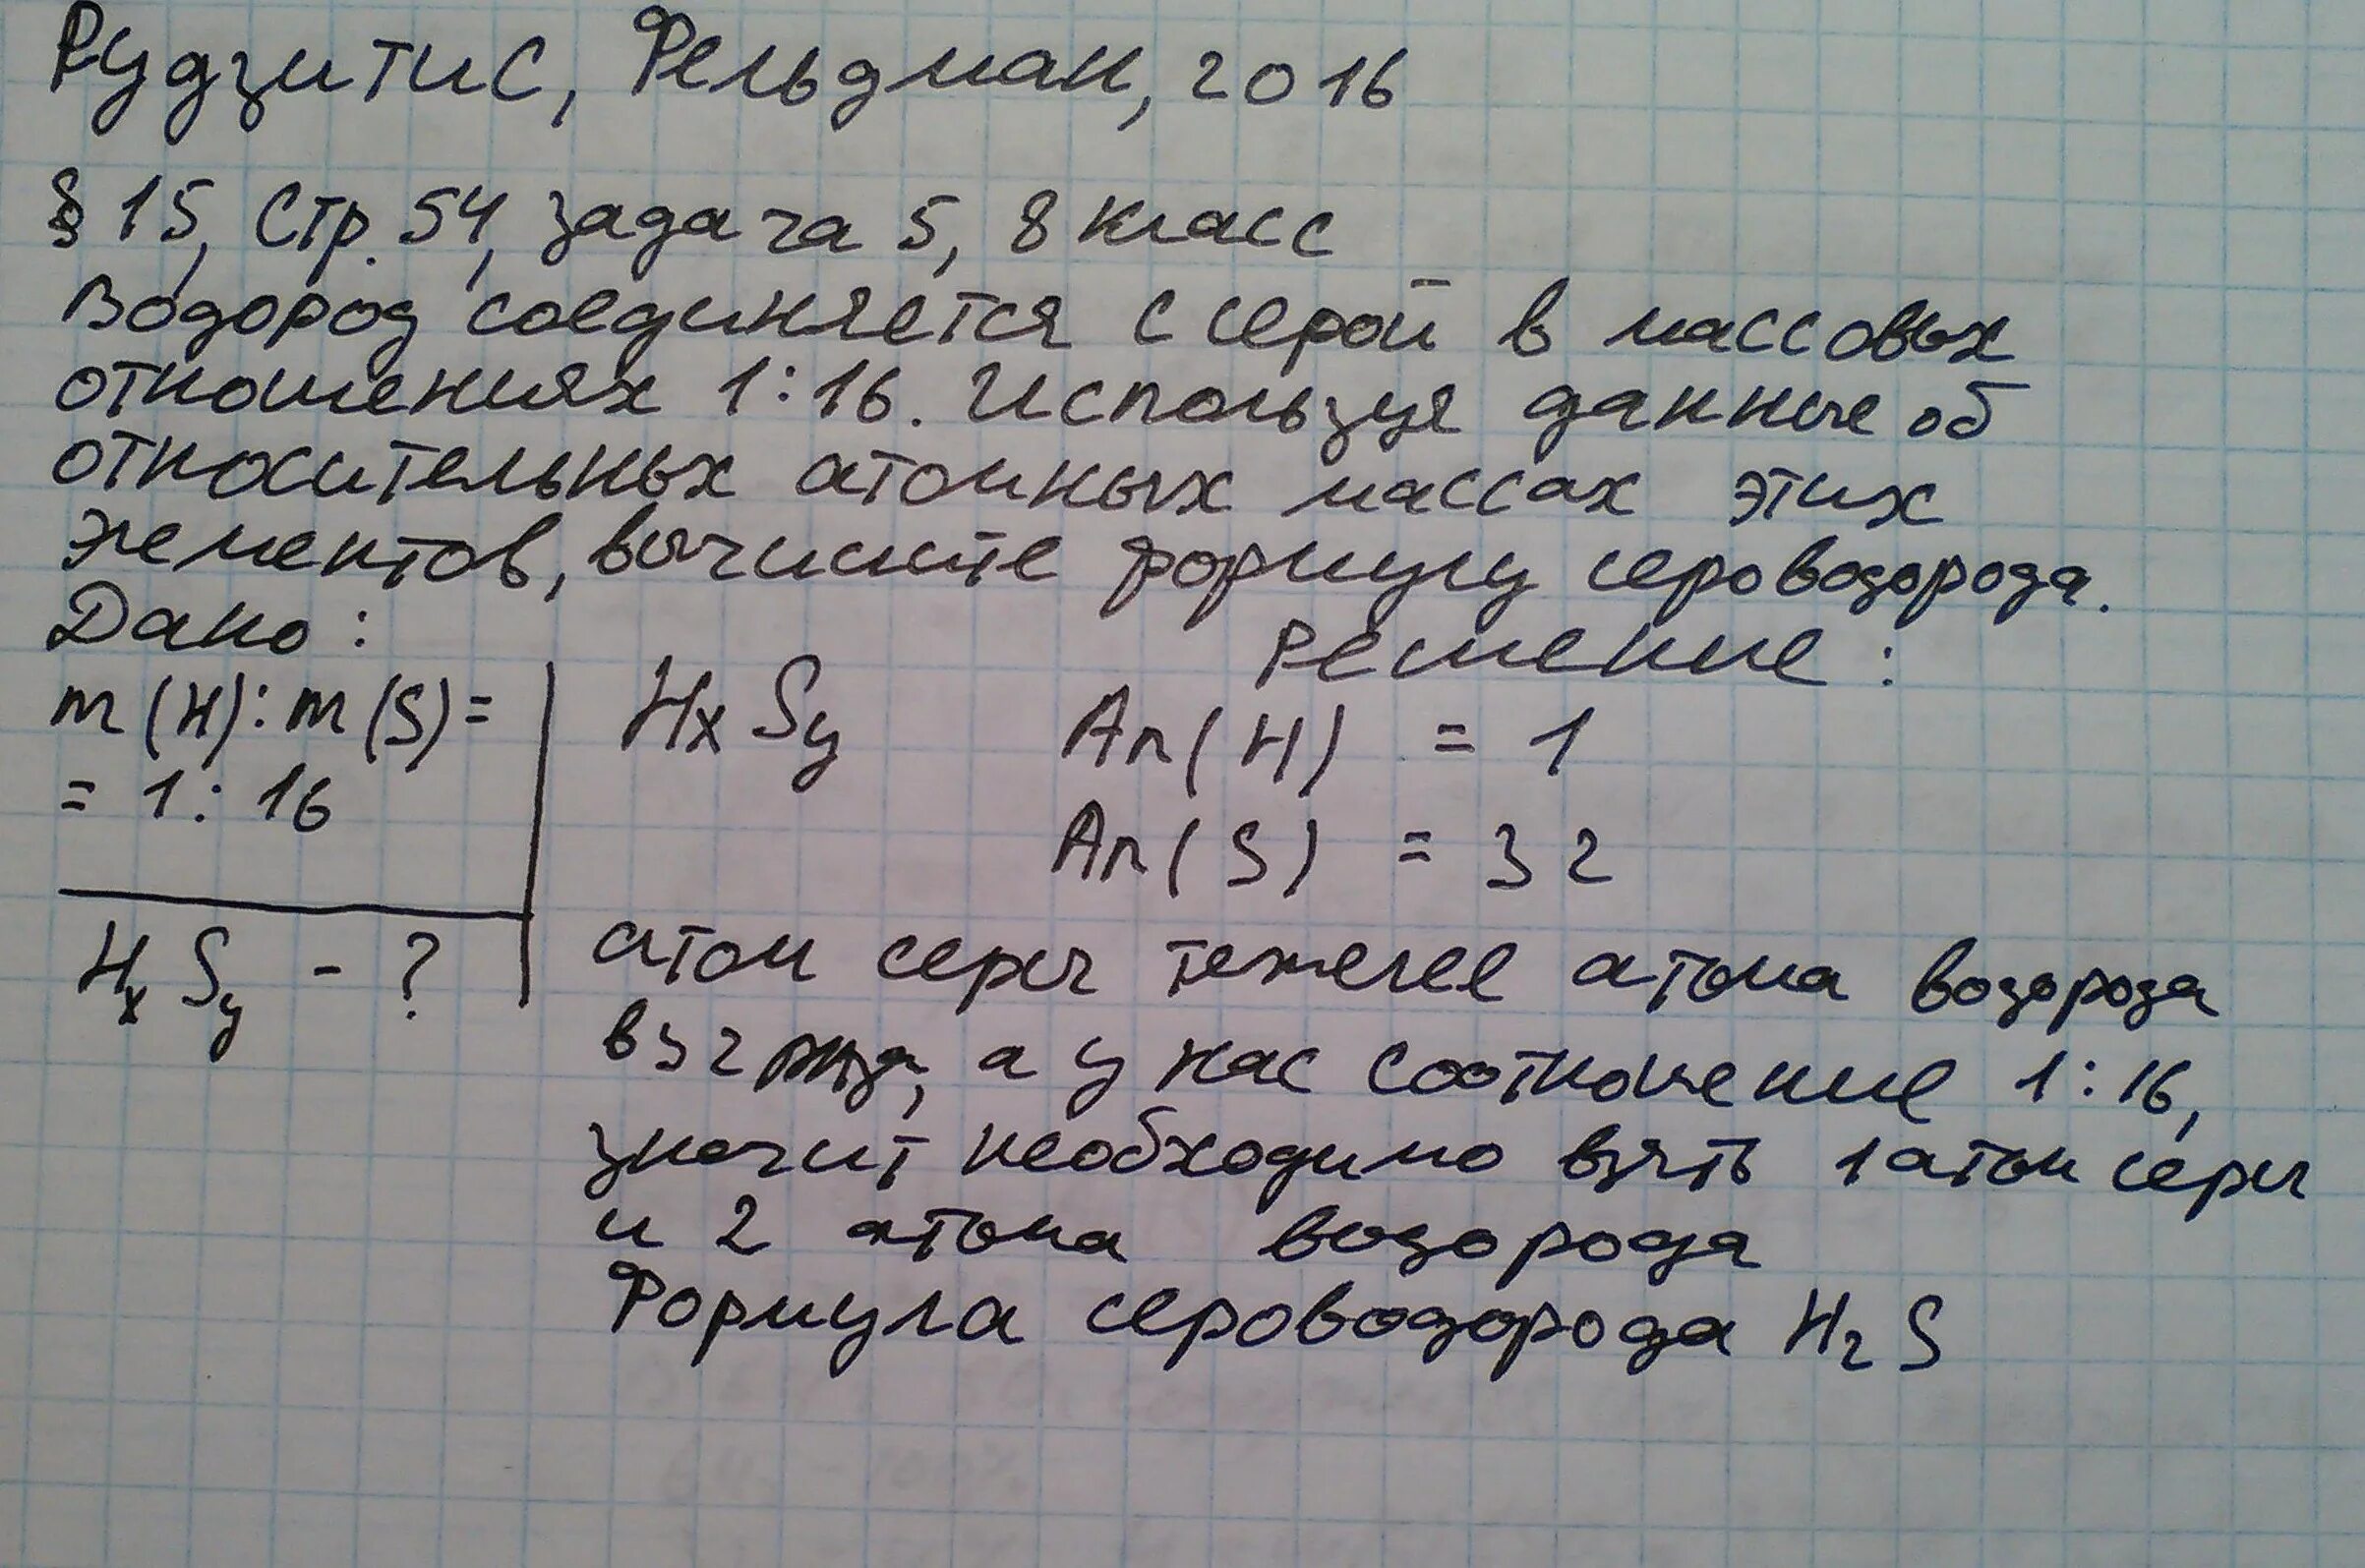 Рудзитис, Фельдман, 2016
§ 15, Стр. 54, задача 5, 8 класс
Водород соединяется с серой в массовых
отношениях 1:16. Используя данные об
относительных атомных массах этих
элементов, вычислите формулу сероводорода.
Дано:
Решение:
m(H):m(S)=
= 1:16
HxSy - ?
HxSy Ar(H) = 1
Ar(S) = 32
атом серы тяжелее атома водорода
в 32 раза, а у нас соотношение 1:16,
значит необходимо взять 1 атом серы
и 2 атома водорода
Формула сероводорода H₂S